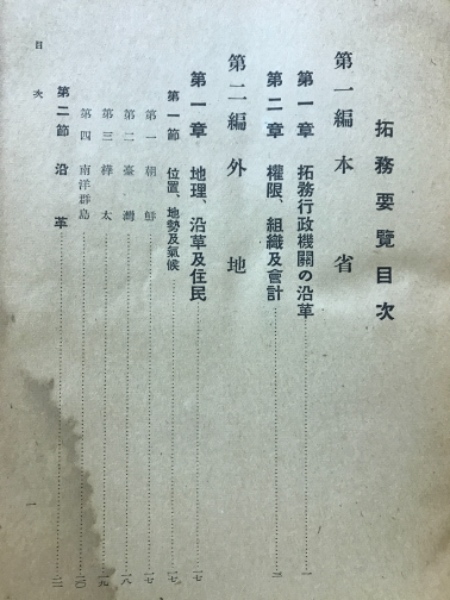 拓務要覽目次
第一編 本省
第一章 拓務行政機關の沿革……一
第二章 權限、組織及會計……三
第二編 外地
第一章 地理、沿革及住民……一七
第一節 位置、地勢及氣候……一七
第一 朝鮮……一七
第二 臺灣……一八
第三 樺太……一九
第四 南洋群島……二〇
第二節 沿革……二二
目次
一